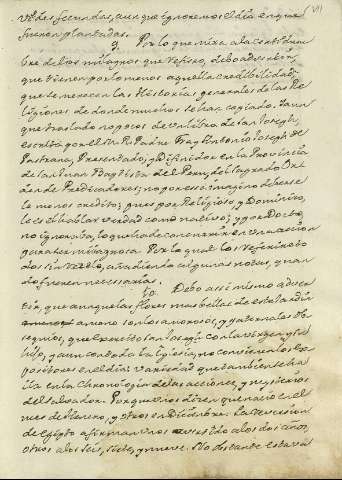 (VI)
verdes fecundas, aunque ignoremos el dia en que
fueron plantadas.
9. Por lo que mira a la certidum
bre de los milagros que refiero, debo advertir,
que tienen por lo menos aquella credibilidad,
que se merecen las Historias generales de las Re
ligiones de donde muchos se han copiado. Aun
que traslado no pocos de un libro de San Joseph,
escrito por el M. R. Padre Fray Antonio Joseph de
Pastrana, Presentado, y Difinidor en la Provincia
de San Juan Baptista del Peru, del sagrado Or
den de Predicadores; no por eso imagino deberse
le menos credito; pues por Religioso, y Dominico,
le es el hablar verdad como nativo; y por Docto,
no ignoraria, lo que ha de concurrir en una accion
para ser milagrosa. Por lo qual los referiré to
dos sin recelo, añadiendo algunas notas, quan
do fueren necesarias.
10. Debo assi mismo adver
tir, que aunque las flores mas bellas de este Jardin
ameno son los amorosos, y paternales ob
sequios, que exercito San Joseph con la Virgen, y su
hijo, y aun con toda la Iglesia, no convienen los Ex
positores en el dia: variedad, que tambien se ha
lla en la Chronologia de las acciones, y mysterios
del Salvador. Porque unos dicen que nacio en el
mes de Henero, y otros en Diciembre. La reversion
de Egipto afirman unos aver sido a los dos años,
otros a los seis, siete, y nueve. No obstante estava